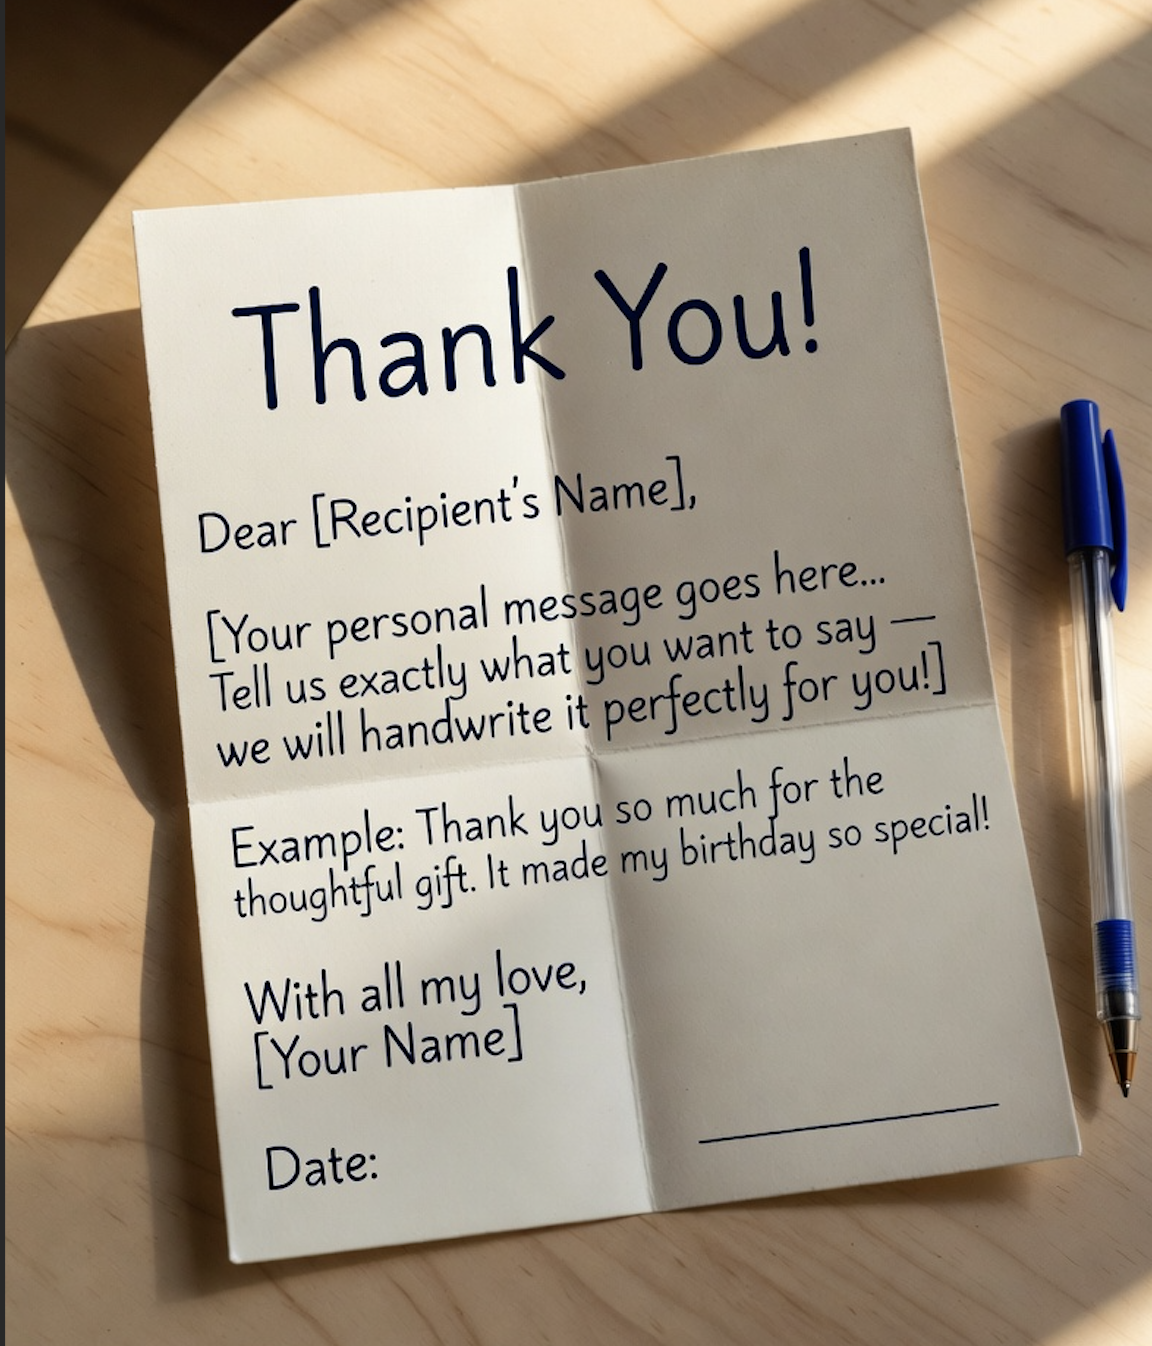 Thank You!
Dear [Recipient's Name],
[Your personal message goes here...
Tell us exactly what you want to say —
we will handwrite it perfectly for you!]
Example: Thank you so much for the
thoughtful gift. It made my birthday so special!
With all my love,
[Your Name]
Date: